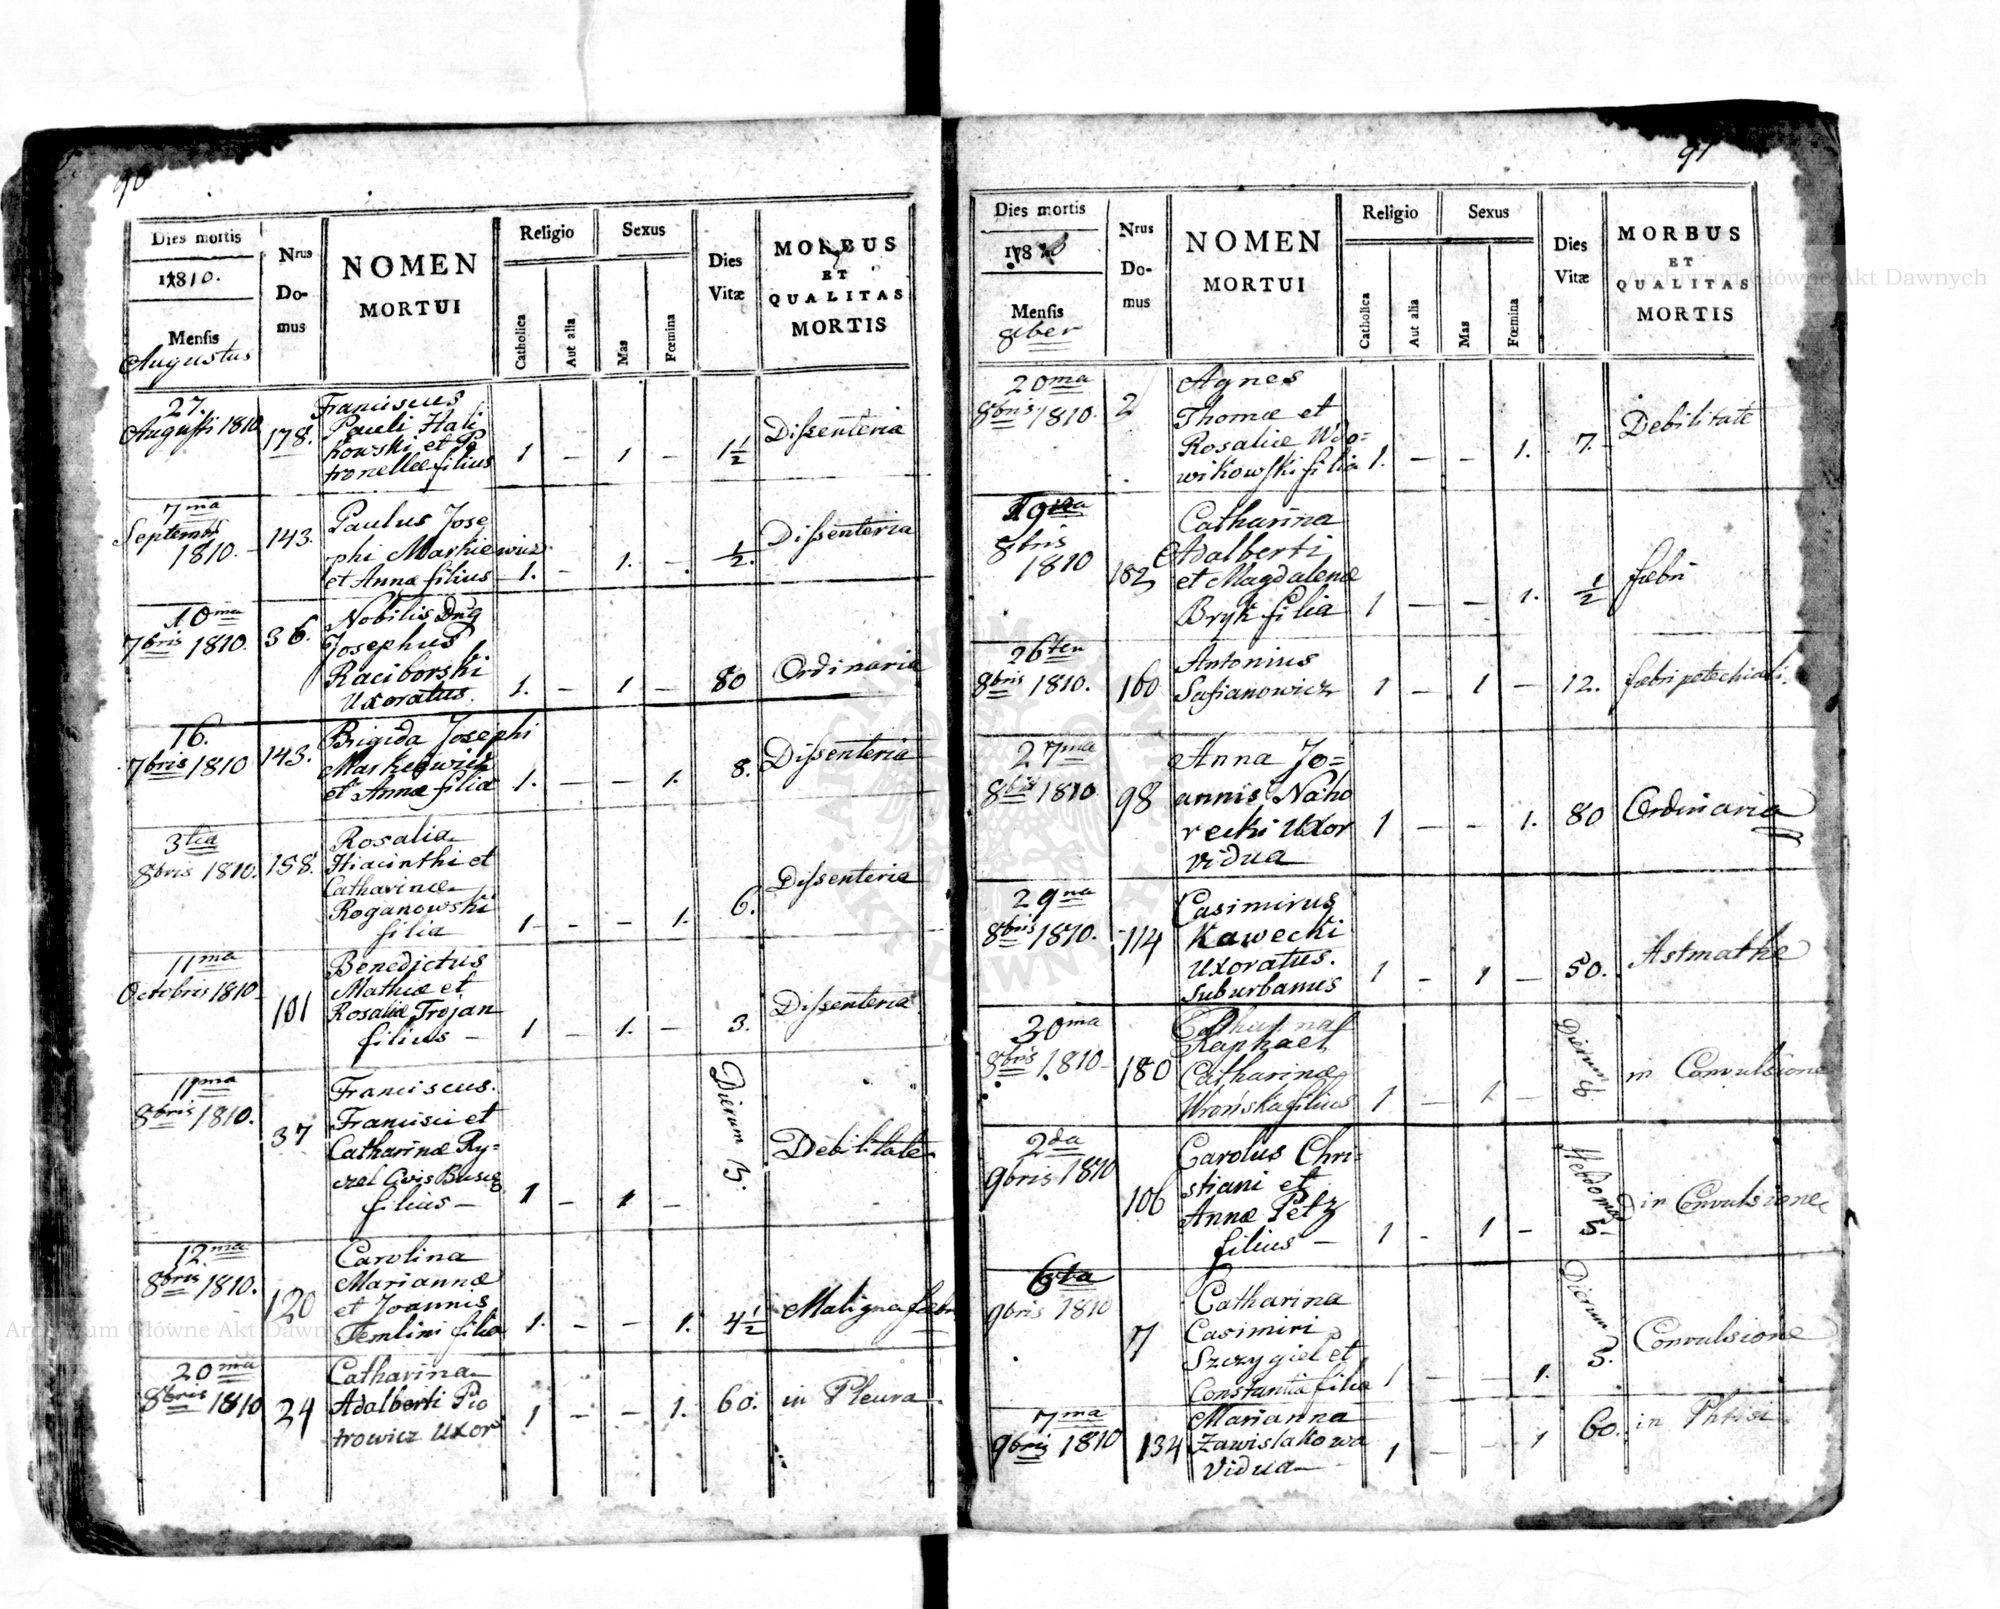 90
Dies mortis
1810.
Mensis
Augustus
Nrus
Do-
mus
NOMEN
MORTUI
Religio
Catholica
Aut alia
Sexus
Mas
Fœmina
Dies
Vitæ
MORBUS
ET
QUALITAS
MORTIS
27.
Augusti 1810
178.
Franciscus
Pauli Hali
kowski et Pe
tronellæ filius
1 — 1 — 1½
Dissenteria
7ma
Septembr
1810.
143.
Paulus Jose
phi Markiewicz
et Annæ filius
1. — 1. — ½.
Dissenteria
10ma
7bris 1810.
36.
Nobilis Dnꝰ
Josephus
Raciborski
Uxoratus.
1. — 1 — 80
Ordinaria
16.
7bris 1810
143.
Brigida Josephi
Markiewicz
et Annæ filia
1. — — 1. 8.
Dissenteria
3tia
8bris 1810.
158.
Rosalia
Hiacinthi et
Catharinæ
Roganowski
filia
1 — — 1. 6.
Dissenteria
11ma
Octobris 1810
101
Benedictus
Mathiæ et
Rosaliæ Trojan
filius —
1 — 1. — 3.
Dissenteria
11ma
8bris 1810.
37
Franciscus.
Francisci et
Catharinæ Ry=
czel Civis Buscz
filius —
1 — 1 —
Dierum 3.
Debilitate
12.ma
8bris 1810.
120
Carolina
Mariannæ
et Joannis
Temlini filia
1. — — 1. 4½
Maligna febri
20ma
8bris 1810
24
Catharina
Adalberti Pio
trowicz Uxor
1 — — 1. 60.
in Pleura
91
Dies mortis
1810
Mensis
8ber
Nrus
Do-
mus
NOMEN
MORTUI
Religio
Catholica
Aut alia
Sexus
Mas
Fœmina
Dies
Vitæ
MORBUS
ET
QUALITAS
MORTIS
20ma
8bris 1810.
2
Agnes
Thomæ et
Rosaliæ Wdo=
wikowski filia
1. — — 1. 7.
Debilitate
8bris
1810
182
Catharina
Adalberti
et Magdalenæ
Bryk filia
1 — — 1. ½
fæbri
26ten
8bris 1810.
160
Antonius
Safianowicz
1 — 1 — 12.
fæbri petechiali.
27ma
8bris 1810
98
Anna Jo=
annis Naho
recki Uxor
vidua
1 — — 1. 80
Ordinaria
29na
8bris 1810.
114
Casimirus
Kawecki
Uxoratus.
Suburbanus
1 — 1 — 50.
Astmathe
30ma
8bris 1810
180
Catharina
Raphael
Catharinæ
Wrońska filius
1 — 1 —
Dierum 8.
in Convulsione
2da
9bris 1810
106
Carolus Chri=
stiani et
Annæ Petz
filius —
1 — 1 —
Hebdomad 5
in Convulsione
6ta
9bris 1810
7
Catharina
Casimiri
Szczygiel et
Constantia filia
1 — — 1.
Dierum 5.
Convulsione
7ma
9bris 1810
134
Marianna
Zawislakowa
Vidua
1 — — 1 60.
in Phtisi
Archiwum Główne Akt Dawnych